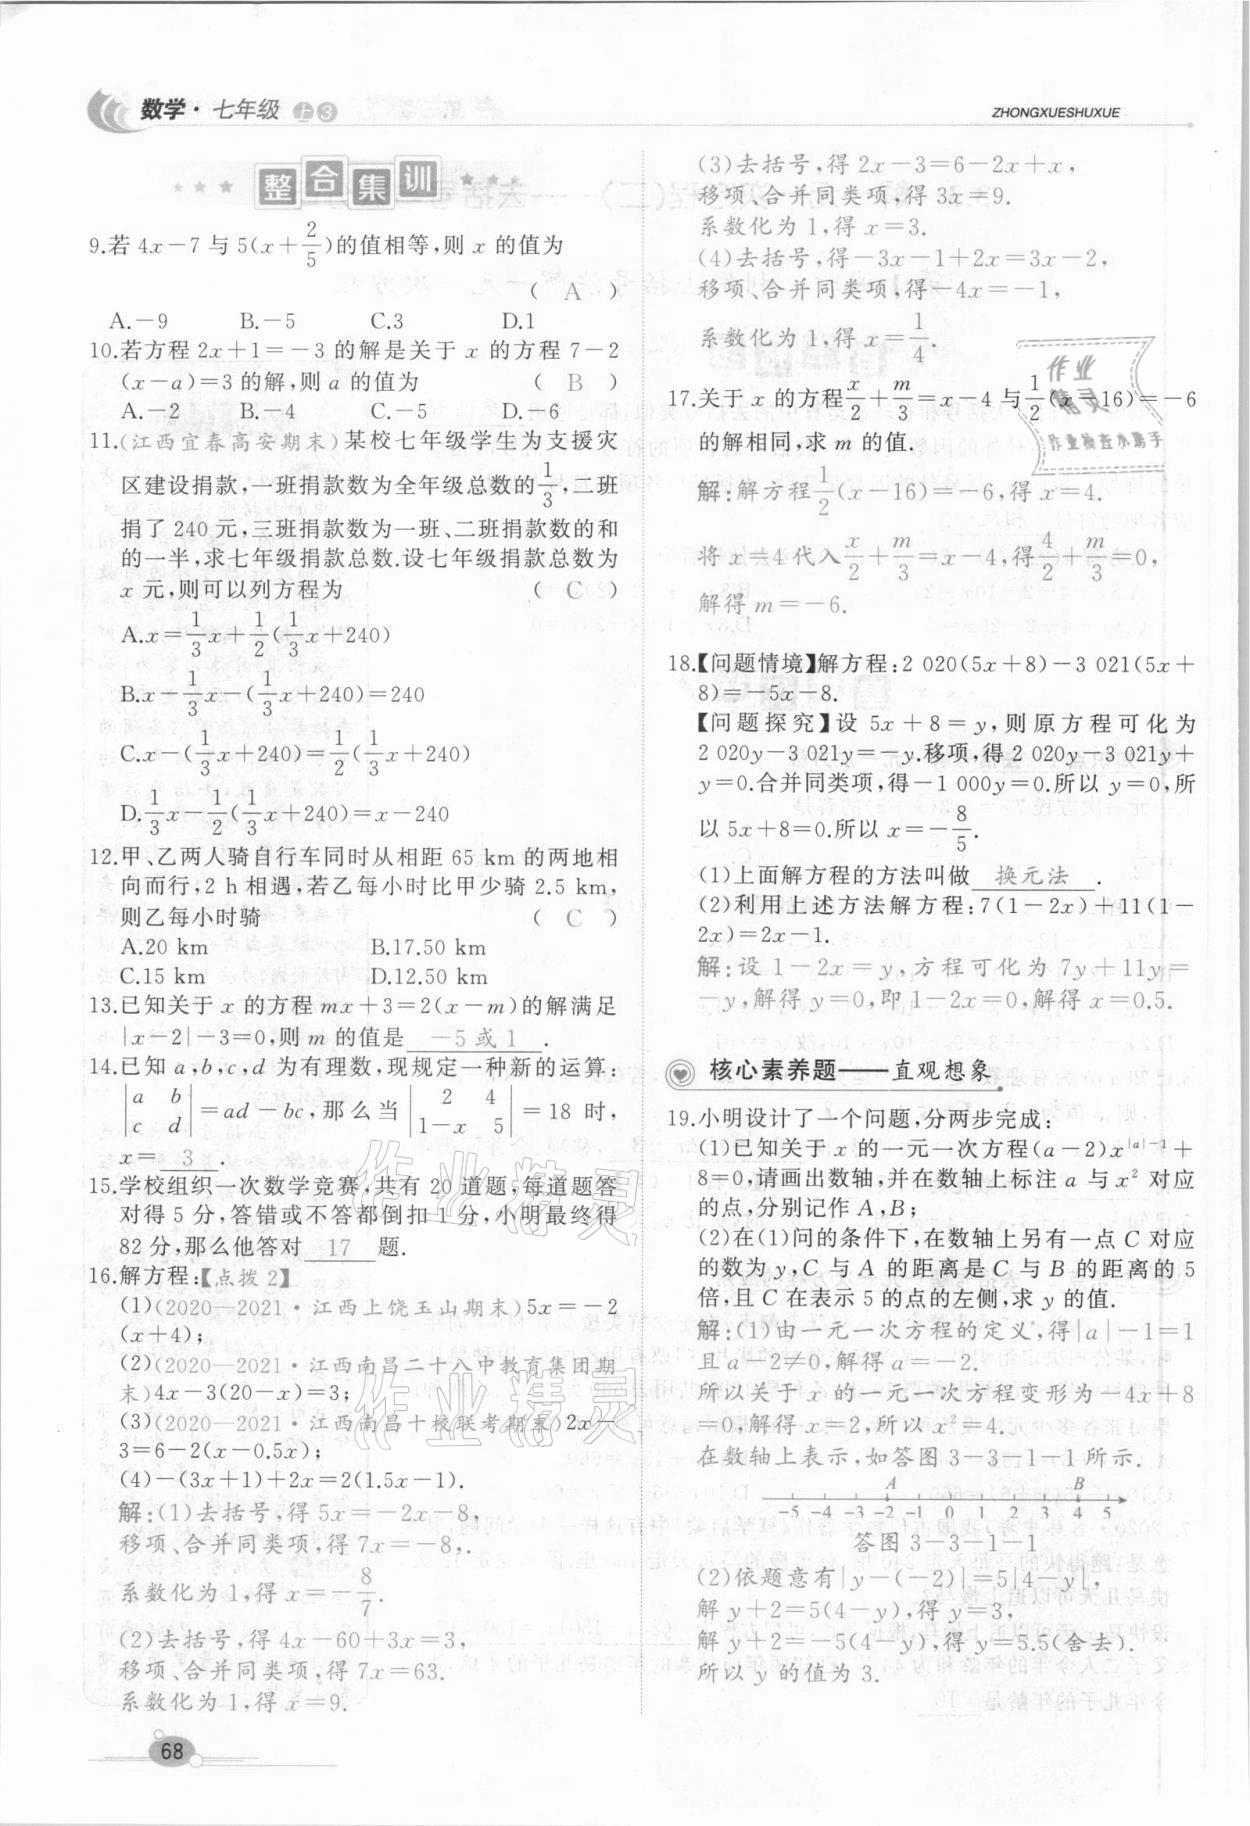 数学·七年级 上 3
ZHONGXUESHUXUE
整合集训
9.若 4x－7 与 5(x＋2/5)的值相等,则 x 的值为
( A )
A.－9 B.－5 C.3 D.1
10.若方程 2x＋1＝－3 的解是关于 x 的方程 7－2
(x－a)＝3 的解,则 a 的值为 ( B )
A.－2 B.－4 C.－5 D.－6
11.(江西宜春高安期末)某校七年级学生为支援灾
区建设捐款,一班捐款数为全年级总数的1/3,二班
捐了 240 元,三班捐款数为一班、二班捐款数的和
的一半,求七年级捐款总数.设七年级捐款总数为
x 元,则可以列方程为 ( C )
A.x＝1/3x＋1/2(1/3x＋240)
B.x－1/3x－(1/3x＋240)＝240
C.x－(1/3x＋240)＝1/2(1/3x＋240)
D.1/3x－1/2(1/3x＋240)＝x－240
12.甲、乙两人骑自行车同时从相距 65 km 的两地相
向而行,2 h 相遇,若乙每小时比甲少骑 2.5 km,
则乙每小时骑 ( C )
A.20 km B.17.50 km
C.15 km D.12.50 km
13.已知关于 x 的方程 mx＋3＝2(x－m)的解满足
|x－2|－3＝0,则 m 的值是 －5 或 1 .
14.已知 a,b,c,d 为有理数,现规定一种新的运算:
|a b|＝ad－bc,那么当|2 4|＝18 时,
|c d| |1－x 5|
x＝ 3 .
15.学校组织一次数学竞赛,共有 20 道题,每道题答
对得 5 分,答错或不答都倒扣 1 分,小明最终得
82 分,那么他答对 17 题.
16.解方程:【点拨 2】
(1)(2020—2021·江西上饶玉山期末)5x＝－2
(x＋4);
(2)(2020—2021·江西南昌二十八中教育集团期
末)4x－3(20－x)＝3;
(3)(2020—2021·江西南昌十校联考期末)2x－
3＝6－2(x－0.5x);
(4)－(3x＋1)＋2x＝2(1.5x－1).
解:(1)去括号,得 5x＝－2x－8,
移项、合并同类项,得 7x＝－8,.
系数化为 1,得 x＝－8/7.
(2)去括号,得 4x－60＋3x＝3,
移项、合并同类项,得 7x＝63.
系数化为 1,得 x＝9.
68
(3)去括号,得 2x－3＝6－2x＋x,
移项、合并同类项,得 3x＝9.
系数化为 1,得 x＝3.
(4)去括号,得－3x－1＋2x＝3x－2,
移项、合并同类项,得－4x＝－1,
系数化为 1,得 x＝1/4.
作业
精灵
作业检查小助手
17.关于 x 的方程x/2＋m/3＝x－4 与1/2(x－16)＝－6
的解相同,求 m 的值.
解:解方程1/2(x－16)＝－6,得 x＝4.
将 x＝4 代入 x/2＋m/3＝x－4,得4/2＋m/3＝0,
解得 m＝－6.
18.【问题情境】解方程:2 020(5x＋8)－3 021(5x＋
8)＝－5x－8.
【问题探究】设 5x＋8＝y,则原方程可化为
2 020y－3 021y＝－y.移项,得 2 020y－3 021y＋
y＝0.合并同类项,得－1 000y＝0.所以 y＝0,所
以 5x＋8＝0.所以 x＝－8/5.
(1)上面解方程的方法叫做 换元法 .
(2)利用上述方法解方程:7(1－2x)＋11(1－
2x)＝2x－1.
解:设 1－2x＝y,方程可化为 7y＋11y＝
－y,解得 y＝0,即 1－2x＝0,解得 x＝0.5.
核心素养题——直观想象
19.小明设计了一个问题,分两步完成:
(1)已知关于 x 的一元一次方程(a－2)x^|a|－1＋
8＝0,请画出数轴,并在数轴上标注 a 与 x² 对应
的点,分别记作 A,B;
(2)在(1)问的条件下,在数轴上另有一点 C 对应
的数为 y,C 与 A 的距离是 C 与 B 的距离的 5
倍,且 C 在表示 5 的点的左侧,求 y 的值.
解:(1)由一元一次方程的定义,得|a|－1＝1
且 a－2≠0,解得 a＝－2.
所以关于 x 的一元一次方程变形为－4x＋8
＝0,解得 x＝2,所以 x²＝4.
在数轴上表示,如答图 3－3－1－1 所示.
A B
－5 －4 －3 －2 －1 0 1 2 3 4 5
答图 3－3－1－1
(2)依题意有|y－(－2)|＝5|4－y|,
解 y＋2＝5(4－y),得 y＝3,
解 y＋2＝－5(4－y),得 y＝5.5(舍去).
所以 y 的值为 3.
作业精灵
作业精灵